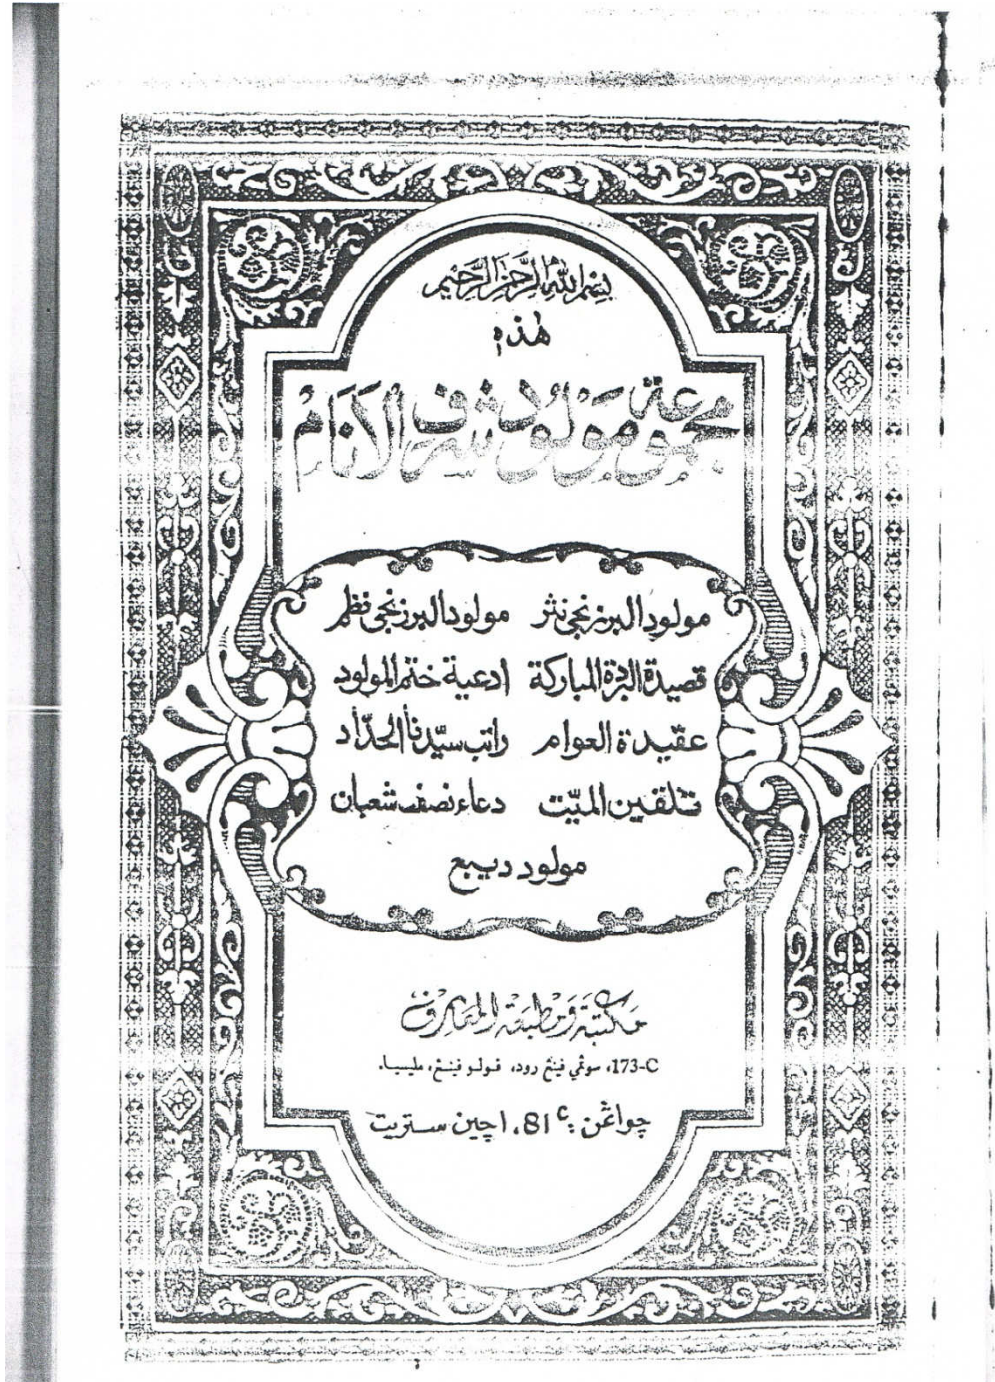 بسم الله الرحمن الرحيم
هذه
مجموعة مولود شرف الانام
مولود البرزنجي نثر مولود البرزنجي نظم
قصيدة البردة المباركة ادعية ختم المولود
عقيدة العوام راتب سيّدنا الحدّاد
تلقين الميّت دعاء نصف شعبان
مولود ديبع
مكتبة ومطبعة المعارف
173-C، سوڠي ڤينڠ رود، ڤولو ڤينڠ، مليسيا.
چواڠن : 81c، اچين ستريت